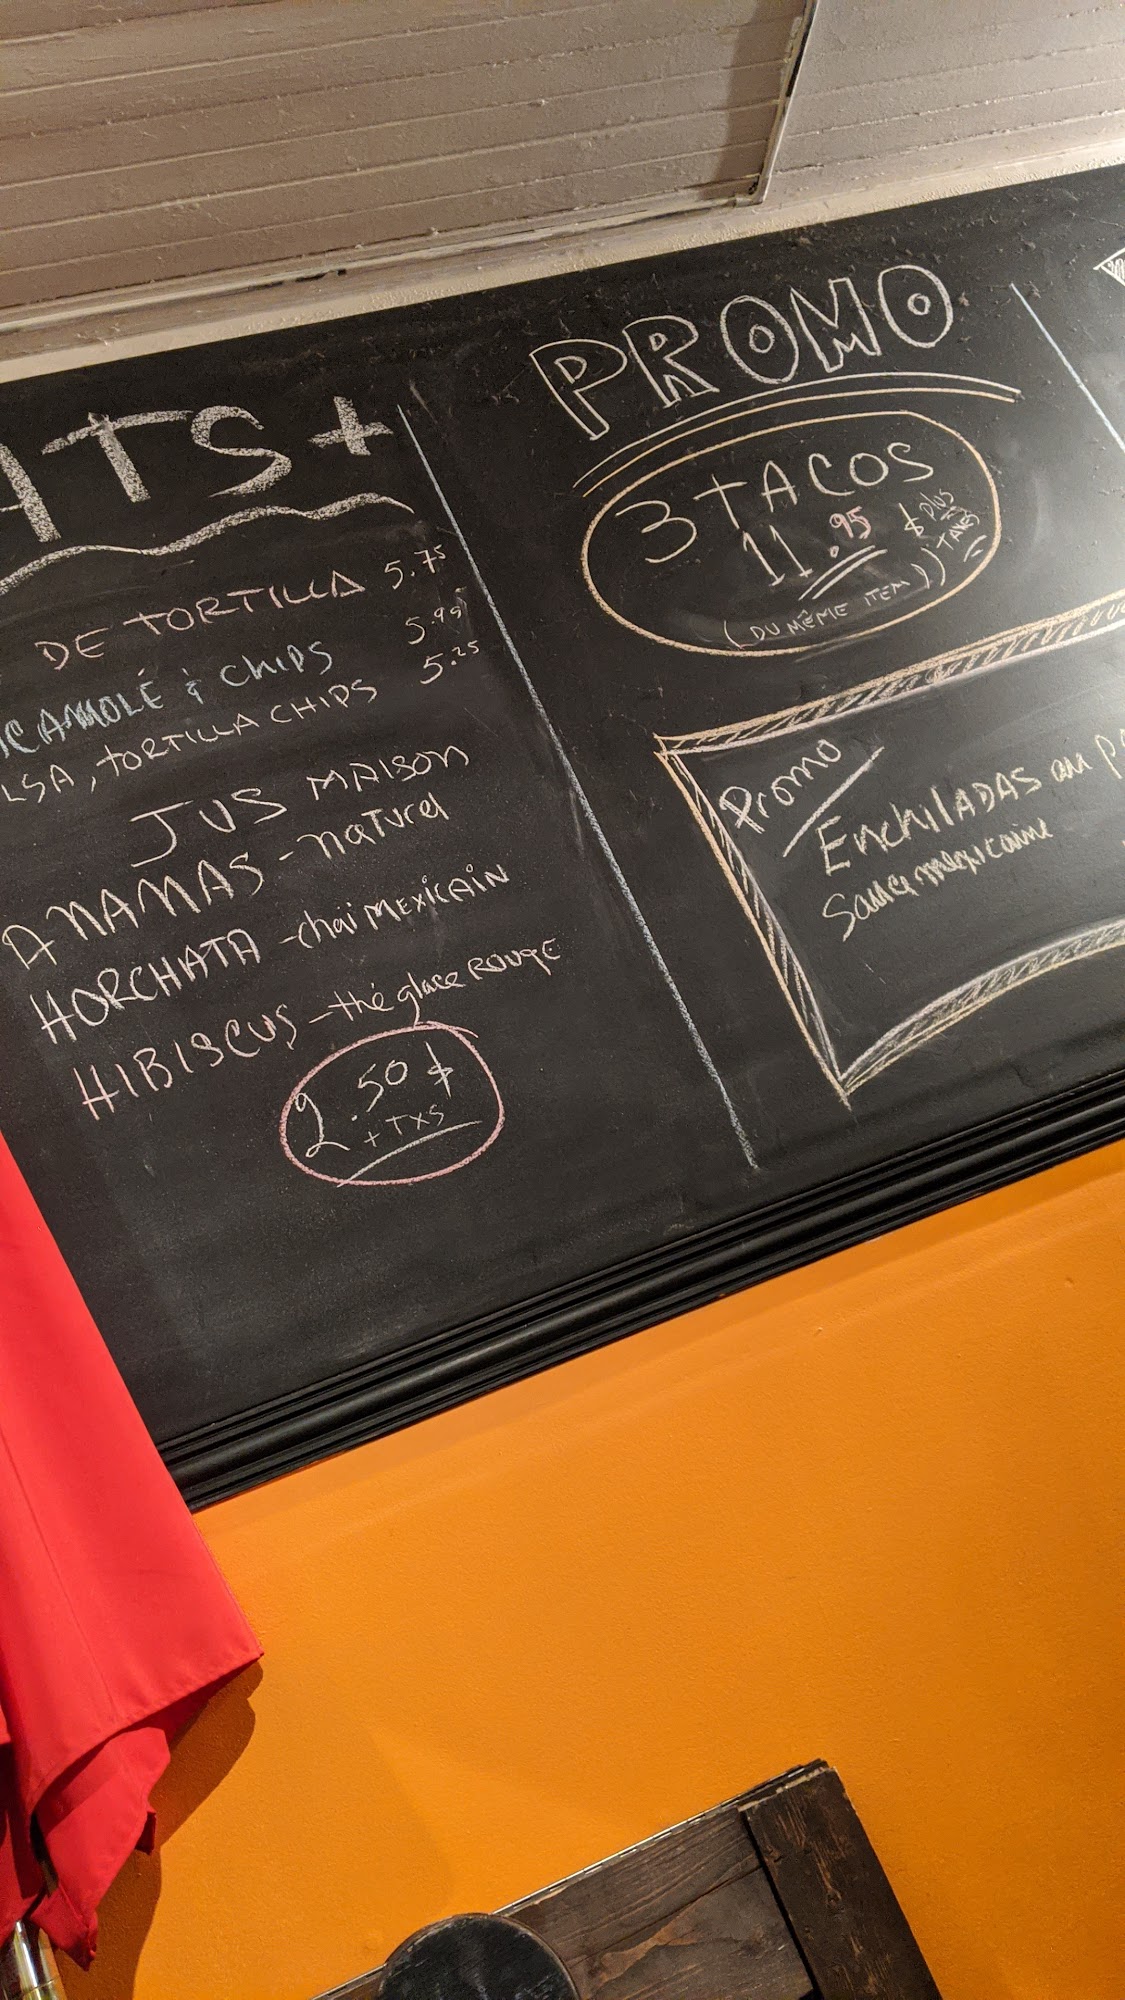 HTS +
DE TORTILLA 5.75
CAMOLÉ & CHIPS 5.95
LSA, TORTILLA CHIPS 5.25
JUS MAISON
ANAMAS - naturel
HORCHATA - chaï MEXICAIN
HIBISCUS - thé glace ROUGE
2.50 $
+ TXS
PROMO
3 TACOS
11.95 $ plus TAXES
(DU MÊME ITEM)
Promo
EnchilADAS au
Sauce mexicaine